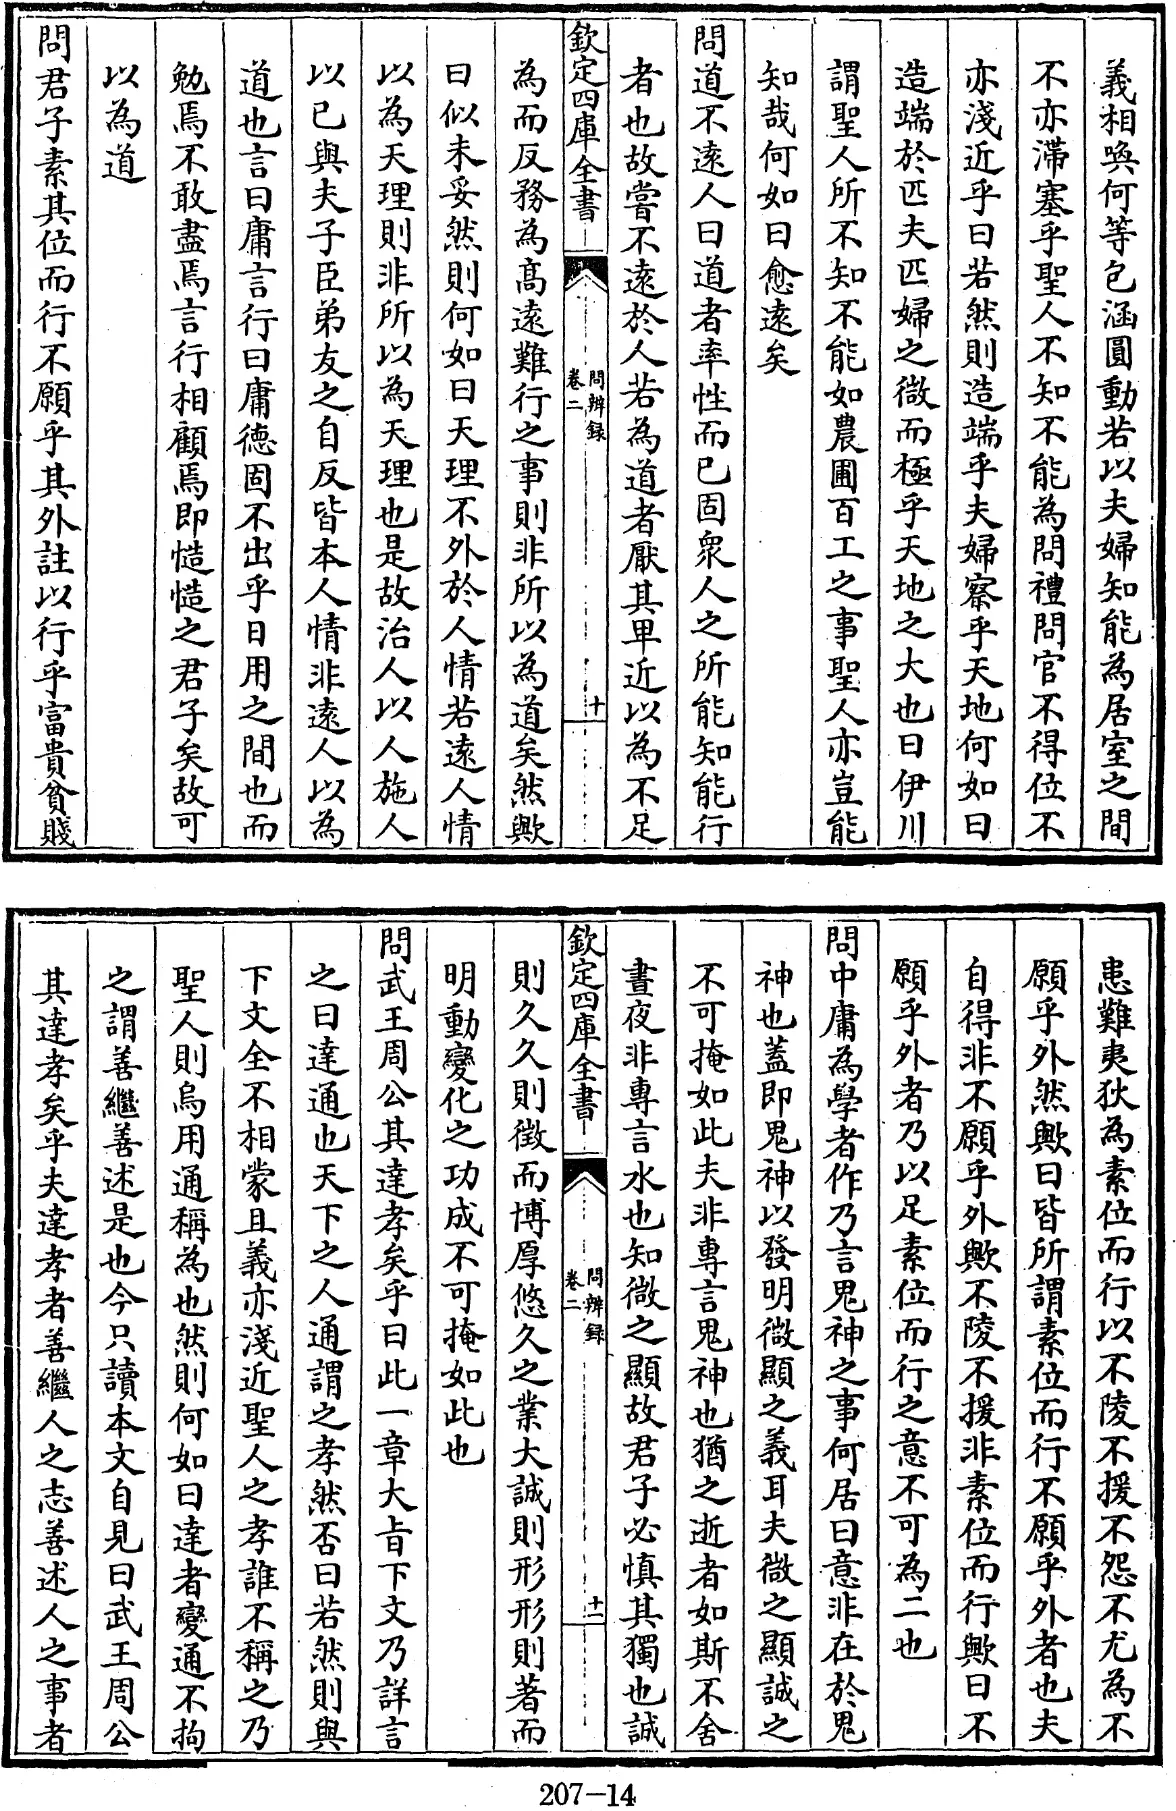 義相喚何等包涵圓動若以夫婦知能為居室之間
不亦滯塞乎聖人不知不能為問禮問官不得位不
亦淺近乎曰若然則造端乎夫婦察乎天地何如曰
造端於匹夫匹婦之微而極乎天地之大也曰伊川
謂聖人所不知不能如農圃百工之事聖人亦豈能
知哉何如曰愈遠矣
問道不遠人曰道者率性而已固衆人之所能知能行
者也故嘗不遠於人若為道者厭其卑近以為不足
欽定四庫全書
問辨録
卷二
十
為而反務為髙遠難行之事則非所以為道矣然歟
曰似未妥然則何如曰天理不外於人情若遠人情
以為天理則非所以為天理也是故治人以人施人
以已與夫子臣弟友之自反皆本人情非遠人以為
道也言曰庸言行曰庸德固不出乎日用之間也而
勉焉不敢盡焉言行相顧焉即慥慥之君子矣故可
以為道
問君子素其位而行不願乎其外註以行乎富貴貧賤
患難夷狄為素位而行以不陵不援不怨不尤為不
願乎外然歟曰皆所謂素位而行不願乎外者也夫
自得非不願乎外歟不陵不援非素位而行歟曰不
願乎外者乃以足素位而行之意不可為二也
問中庸為學者作乃言鬼神之事何居曰意非在於鬼
神也蓋即鬼神以發明微顯之義耳夫微之顯誠之
不可掩如此夫非專言鬼神也猶之逝者如斯不舍
晝夜非專言水也知微之顯故君子必慎其獨也誠
欽定四庫全書
問辨録
卷二
十一
則久久則徵而博厚悠久之業大誠則形形則著而
明動變化之功成不可掩如此也
問武王周公其達孝矣乎曰此一章大㫖下文乃詳言
之曰達通也天下之人通謂之孝然否曰若然則與
下文全不相蒙且義亦淺近聖人之孝誰不稱之乃
聖人則烏用通稱為也然則何如曰達者變通不拘
之謂善繼善述是也今只讀本文自見曰武王周公
其達孝矣乎夫達孝者善繼人之志善述人之事者
207-14